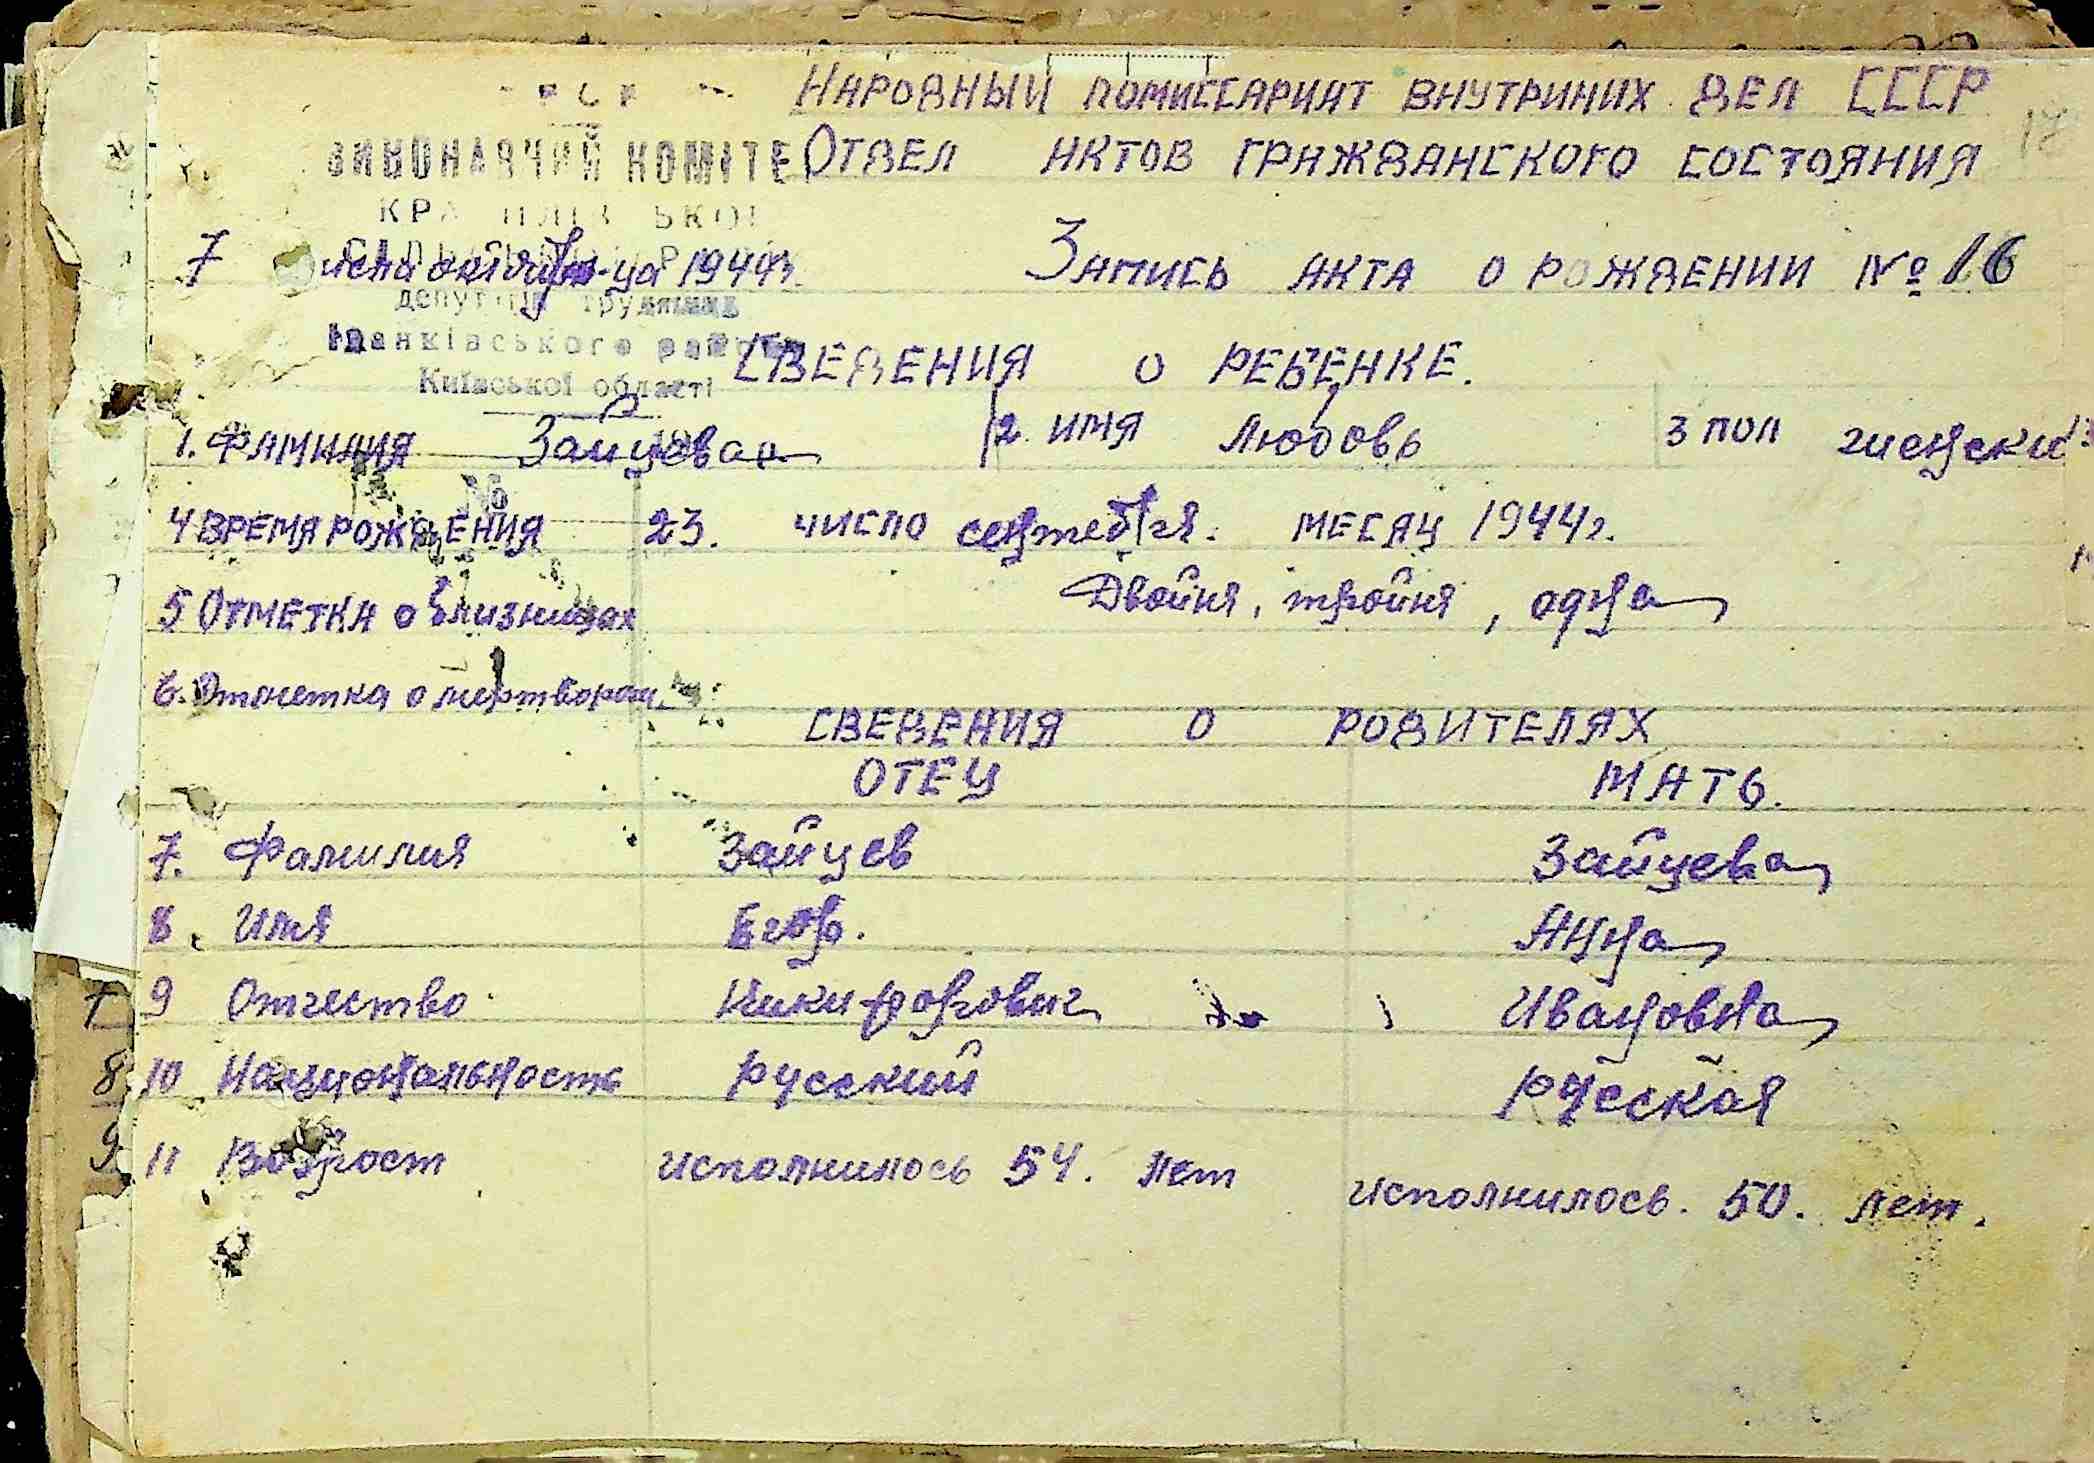 НАРОДНЫЙ КОМИССАРИАТ ВНУТРИНИХ ДЕЛ СССР
ВИКОНАВЧИЙ КОМІТЕ
ОТДЕЛ АКТОВ ГРАЖДАНСКОГО СОСТОЯНИЯ
7 числа октября м-ца 1944г.
ЗАПИСЬ АКТА О РОЖДЕНИИ № 16
депутатів трудящих
Іванківського району
Київської області
СВЕДЕНИЯ О РЕБЕНКЕ.
1. ФАМИЛИЯ Зайцева 2. ИМЯ Любовь 3 ПОЛ женски
№
4 ВРЕМЯ РОЖДЕНИЯ 23. ЧИСЛО сентебря. МЕСЯЦ 1944г.
5 ОТМЕТКА о близнецах Двойня, тройня, одна
6. Отметка о мертворож.
СВЕДЕНИЯ О РОДИТЕЛЯХ
ОТЕЦ МАТЬ.
7. Фамилия Зайцев Зайцева
8. Имя Егор. Анна
9 Отчество Никифорович Ивановна
10 Национальность русский русская
11 Возраст исполнилось 54. лет исполнилось. 50. лет.